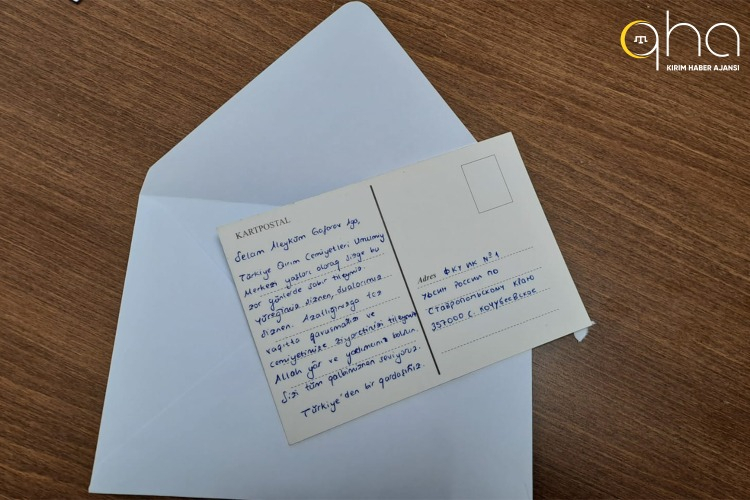 qha
KIRIM HABER AJANSI
KARTPOSTAL
Selam Aleyküm Gafarov Aga,
Türkiye Qırım Cemiyetleri Umumiy
Merkezi yaşları olaraq sizge bu
zor günlerde sabır tileymiz.
Yüregimiz siznen, dualarımız
siznen. Azatlıgıñızga tez
vaqıtta qavuşmañız ve
cemiyetimizge ziyaretiñizni tileymiz
Allah yâr ve yardımcıñız bolsun.
Sizi tüm qalbimiznen seviyoruz.
Türkiye'den bir qardaşıñız.
Adres ФКУ ИК №1
УФСИН РОССИИ ПО
СТАВРОПОЛЬСКОМУ КРАЮ
357000 С. КОЧУБЕЕВСКОЕ